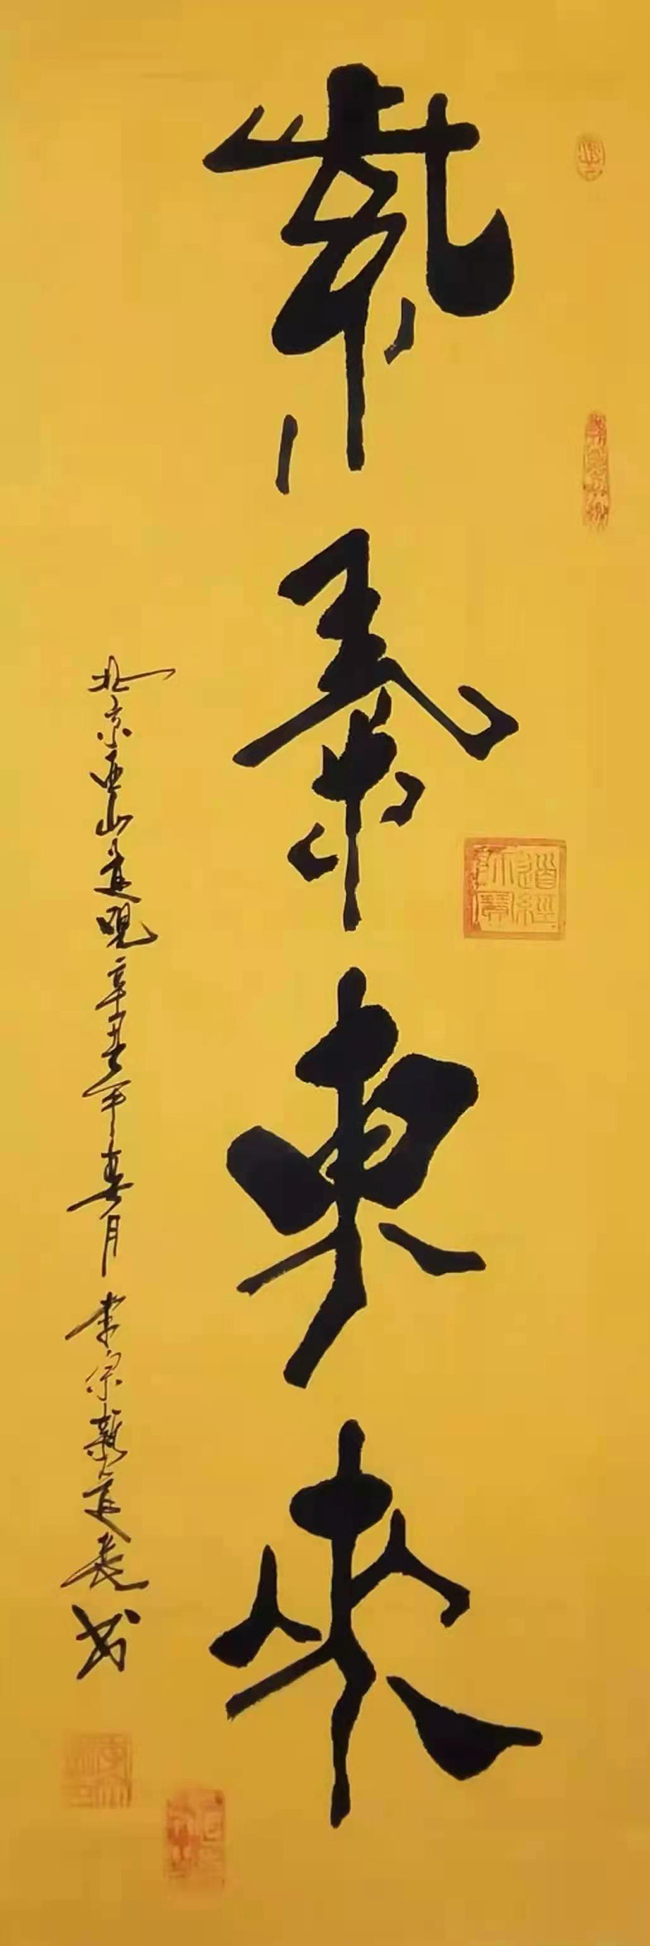 紫氣東來
道經師寶
北京西山道觀辛丑年春月 李宗新道長书